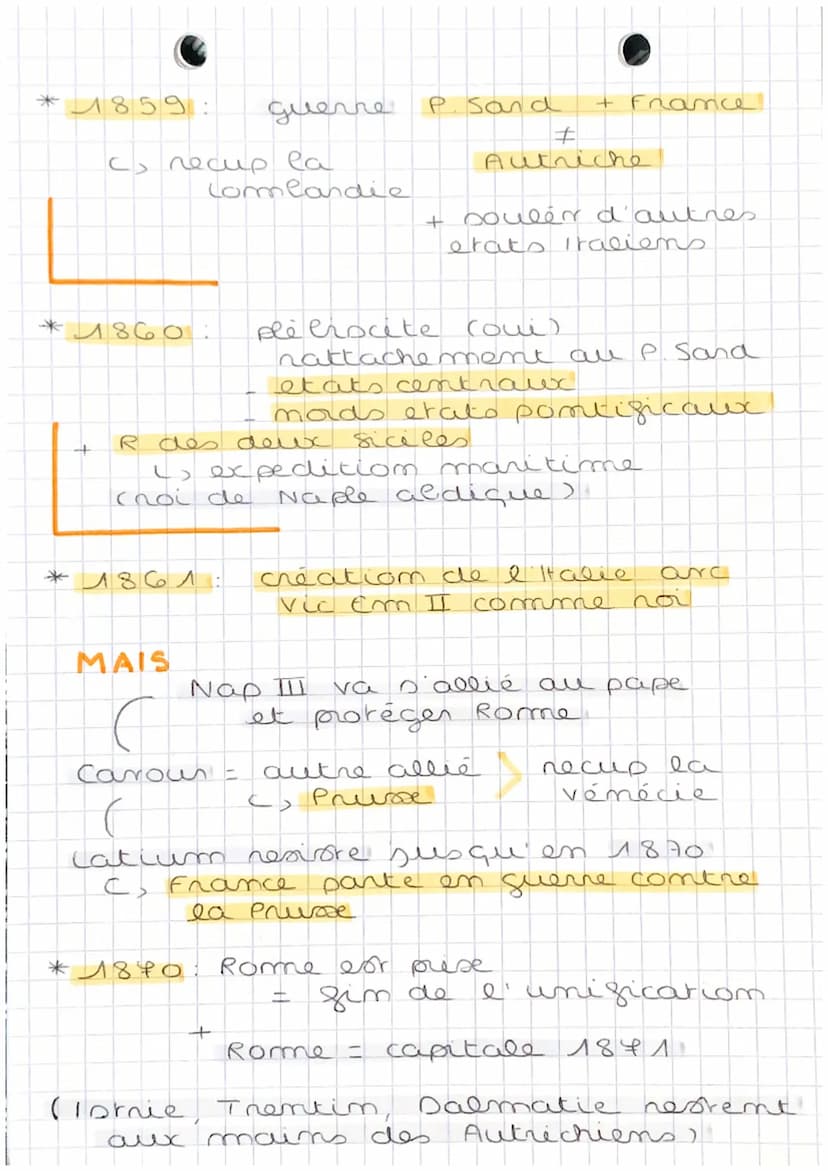 * 1859 : guerre P. Sard + France
≠
↳ recup la Autriche
Lombardie
+ soulèv d'autres
etats Italiens
* 1860 : plébiscite (oui)
rattachement au P. Sard
- etats centraux
- nords etats pontificaux
+ R des deux siciles
↳ expedition maritime
(roi de Naple abdique)
* 1861 : création de l'Italie avc
Vic Em II comme roi
MAIS
Nap III va s'allié au pape
et protéger Rome
Cavour = autre allié > recup la
↳ Prusse vénécie
Latium resiste jusqu'en 1870
↳ France parte en guerre contre
la Prusse
* 1870 : Rome est prise
= fin de l'unification
+
Rome = capitale 1871
(Istrie, Trentin, Dalmatie restent
aux mains des Autrichiens)